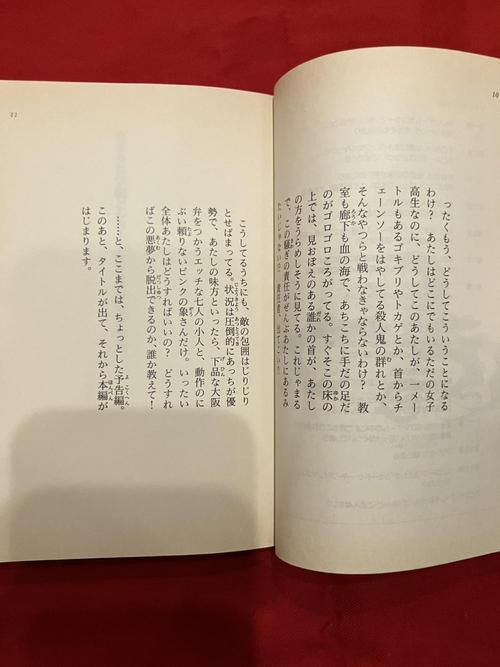 10
ったくもう、どうしてこういうことになる
わけ? あたしはどこにでもいるただの女子
高生なのに、どうしてこのあたしが、一メー
トルもあるゴキブリやトカゲとか、首からチ
ェーンソーをはやしてる殺人鬼の群れとか、
そんなやつらと戦わなきゃならないわけ? 教
室も廊下も血の海で、あちこちに手だの足だ
のがゴロゴロころがってる。すぐそこの床の
上では、見おぼえのある誰かの首が、あたし
の方をうらめしそうに見てる。これじゃまる
で、この騒ぎの責任がぜんぶあたしにあるみ
たいじゃない!? 責任者、出てこい!!
11
こうしてるうちにも、敵の包囲はじりじり
とせばまってる。状況は圧倒的にあっちが優
勢で、あたしの味方といったら、下品な大阪
弁をつかうエッチな七人の小人と、動作のに
ぶい頼りないピンクの象さんだけ。いったい
全体あたしはどうすればいいの? どうすれ
ばこの悪夢から脱出できるのか、誰か教えて!
……と、ここまでは、ちょっとした予告編。
このあと、タイトルが出て、それから本編が
はじまります。